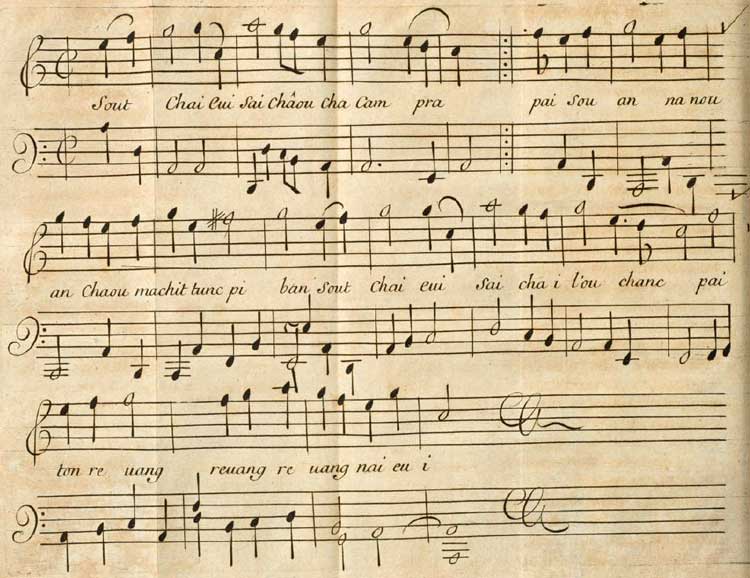 Sout Chai Eui Sai Châou Cha Cam pra pai Sou an na nou
an Chaou machit tunc pi ban Sout Chai eui Sai cha i l'ou chanc pai
ton re uang reuang re uang nai eu i